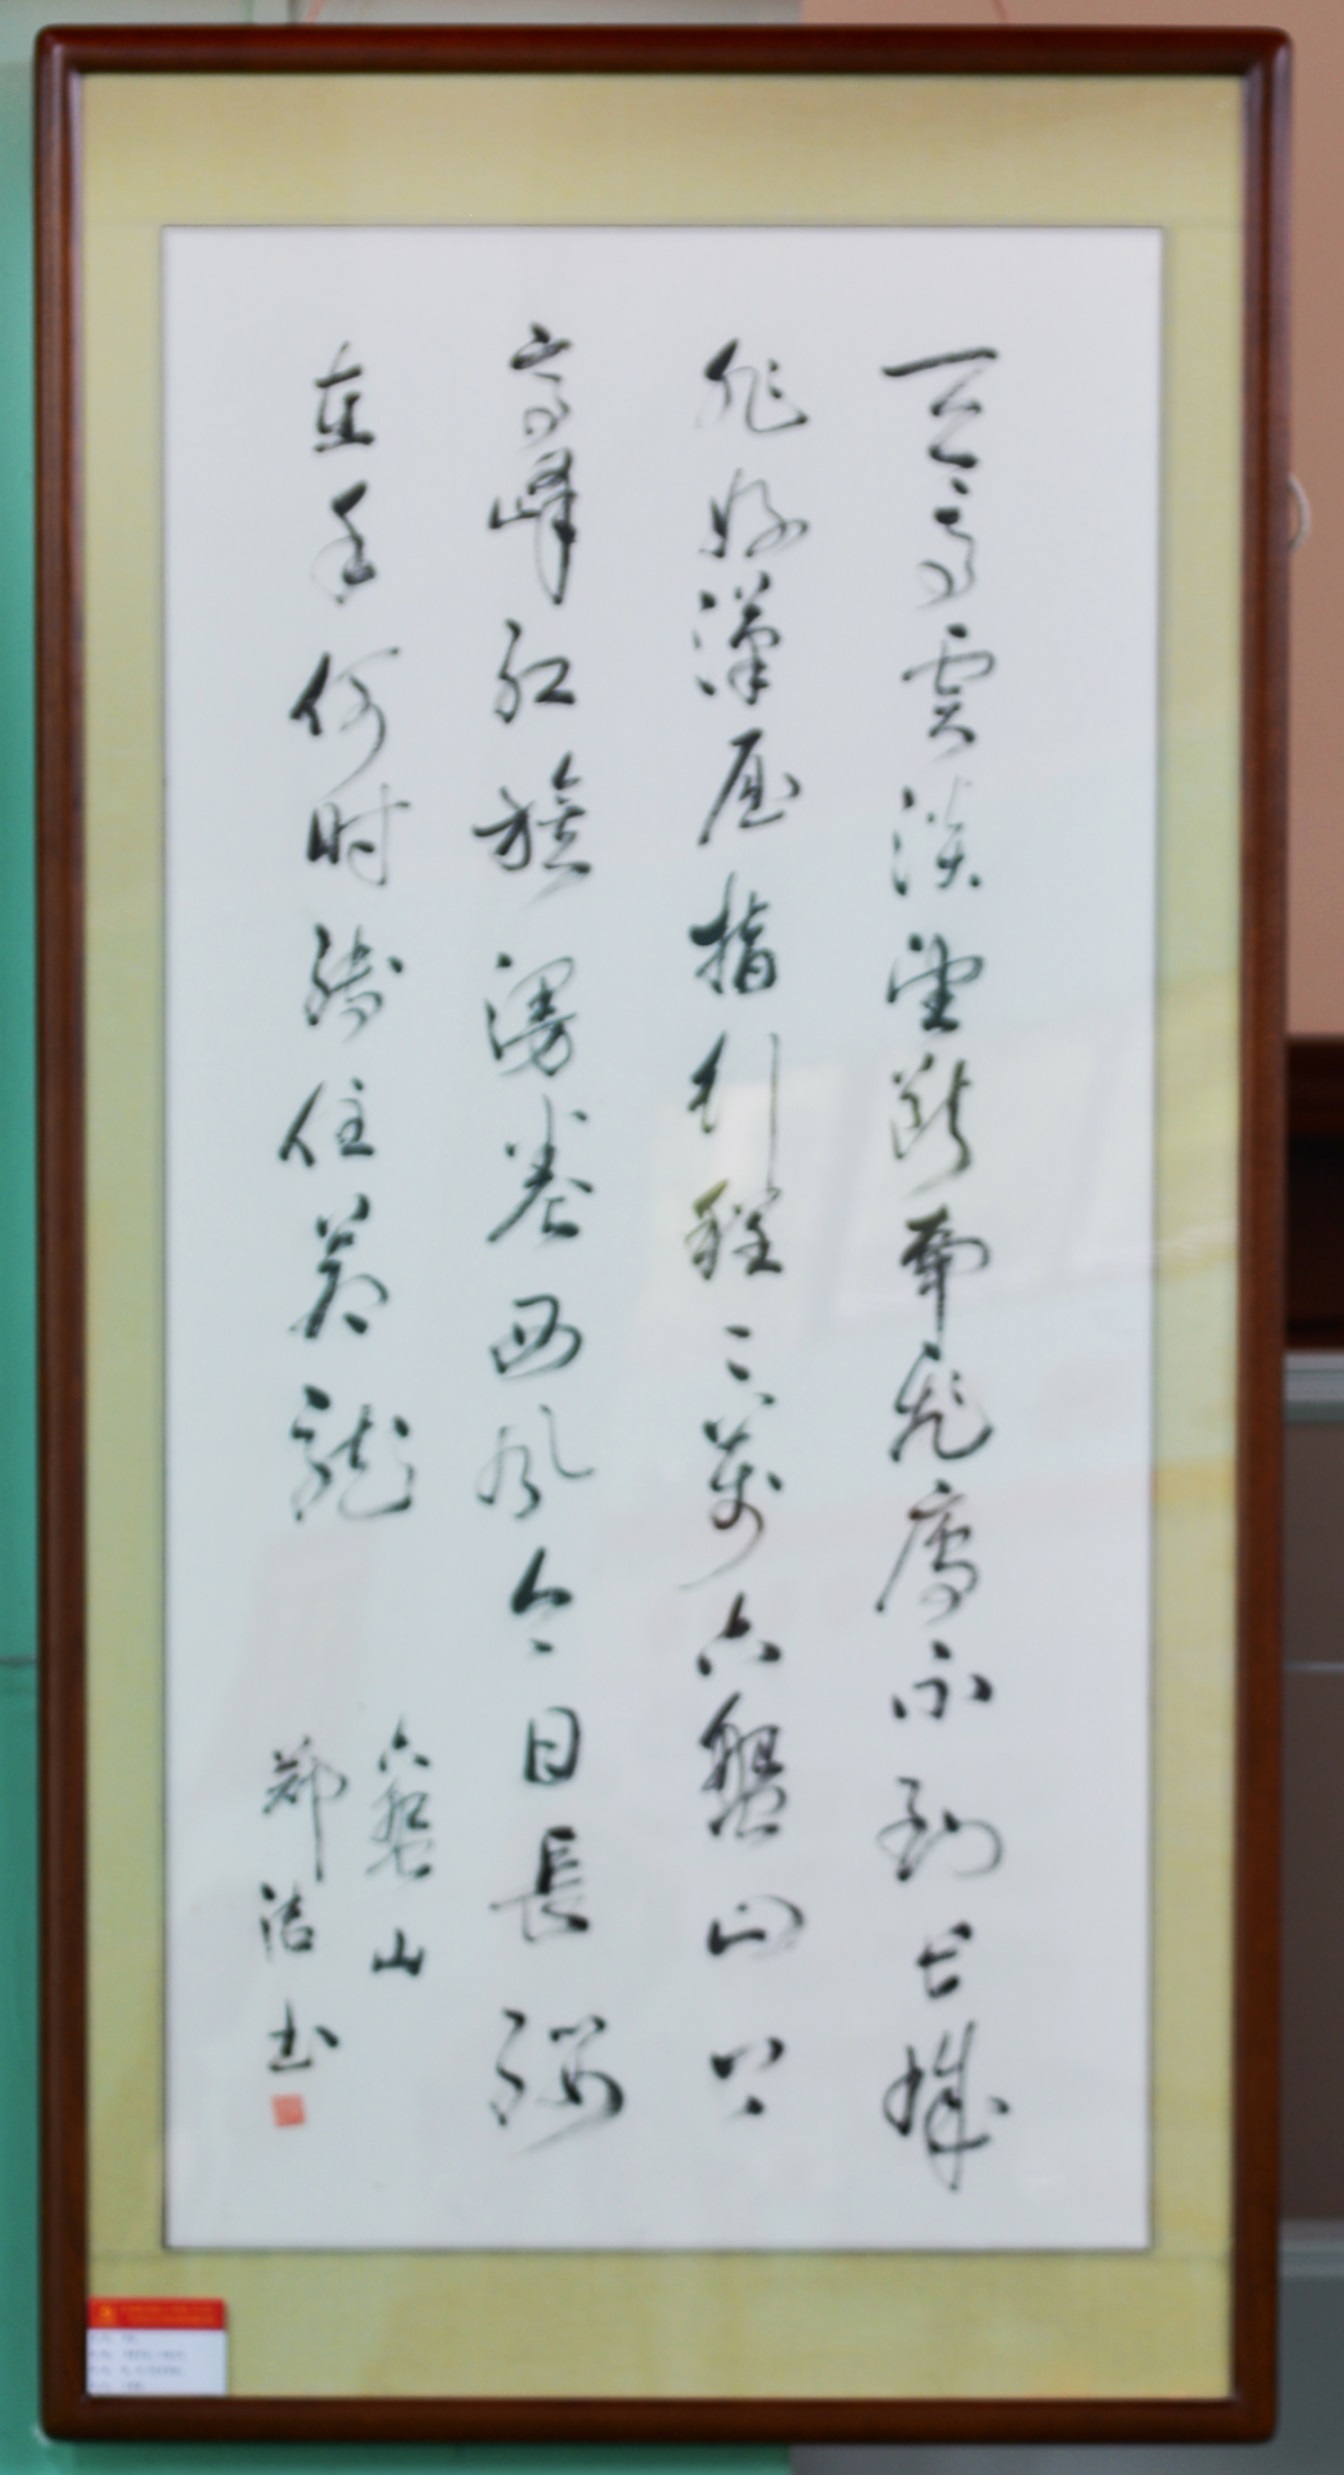 天高雲淡望斷南飛雁不到长城
非好漢屈指行程二萬六盤山上
高峰紅旗漫卷西风今日長纓
在手何时縛住蒼龍
六盤山
郑洁书